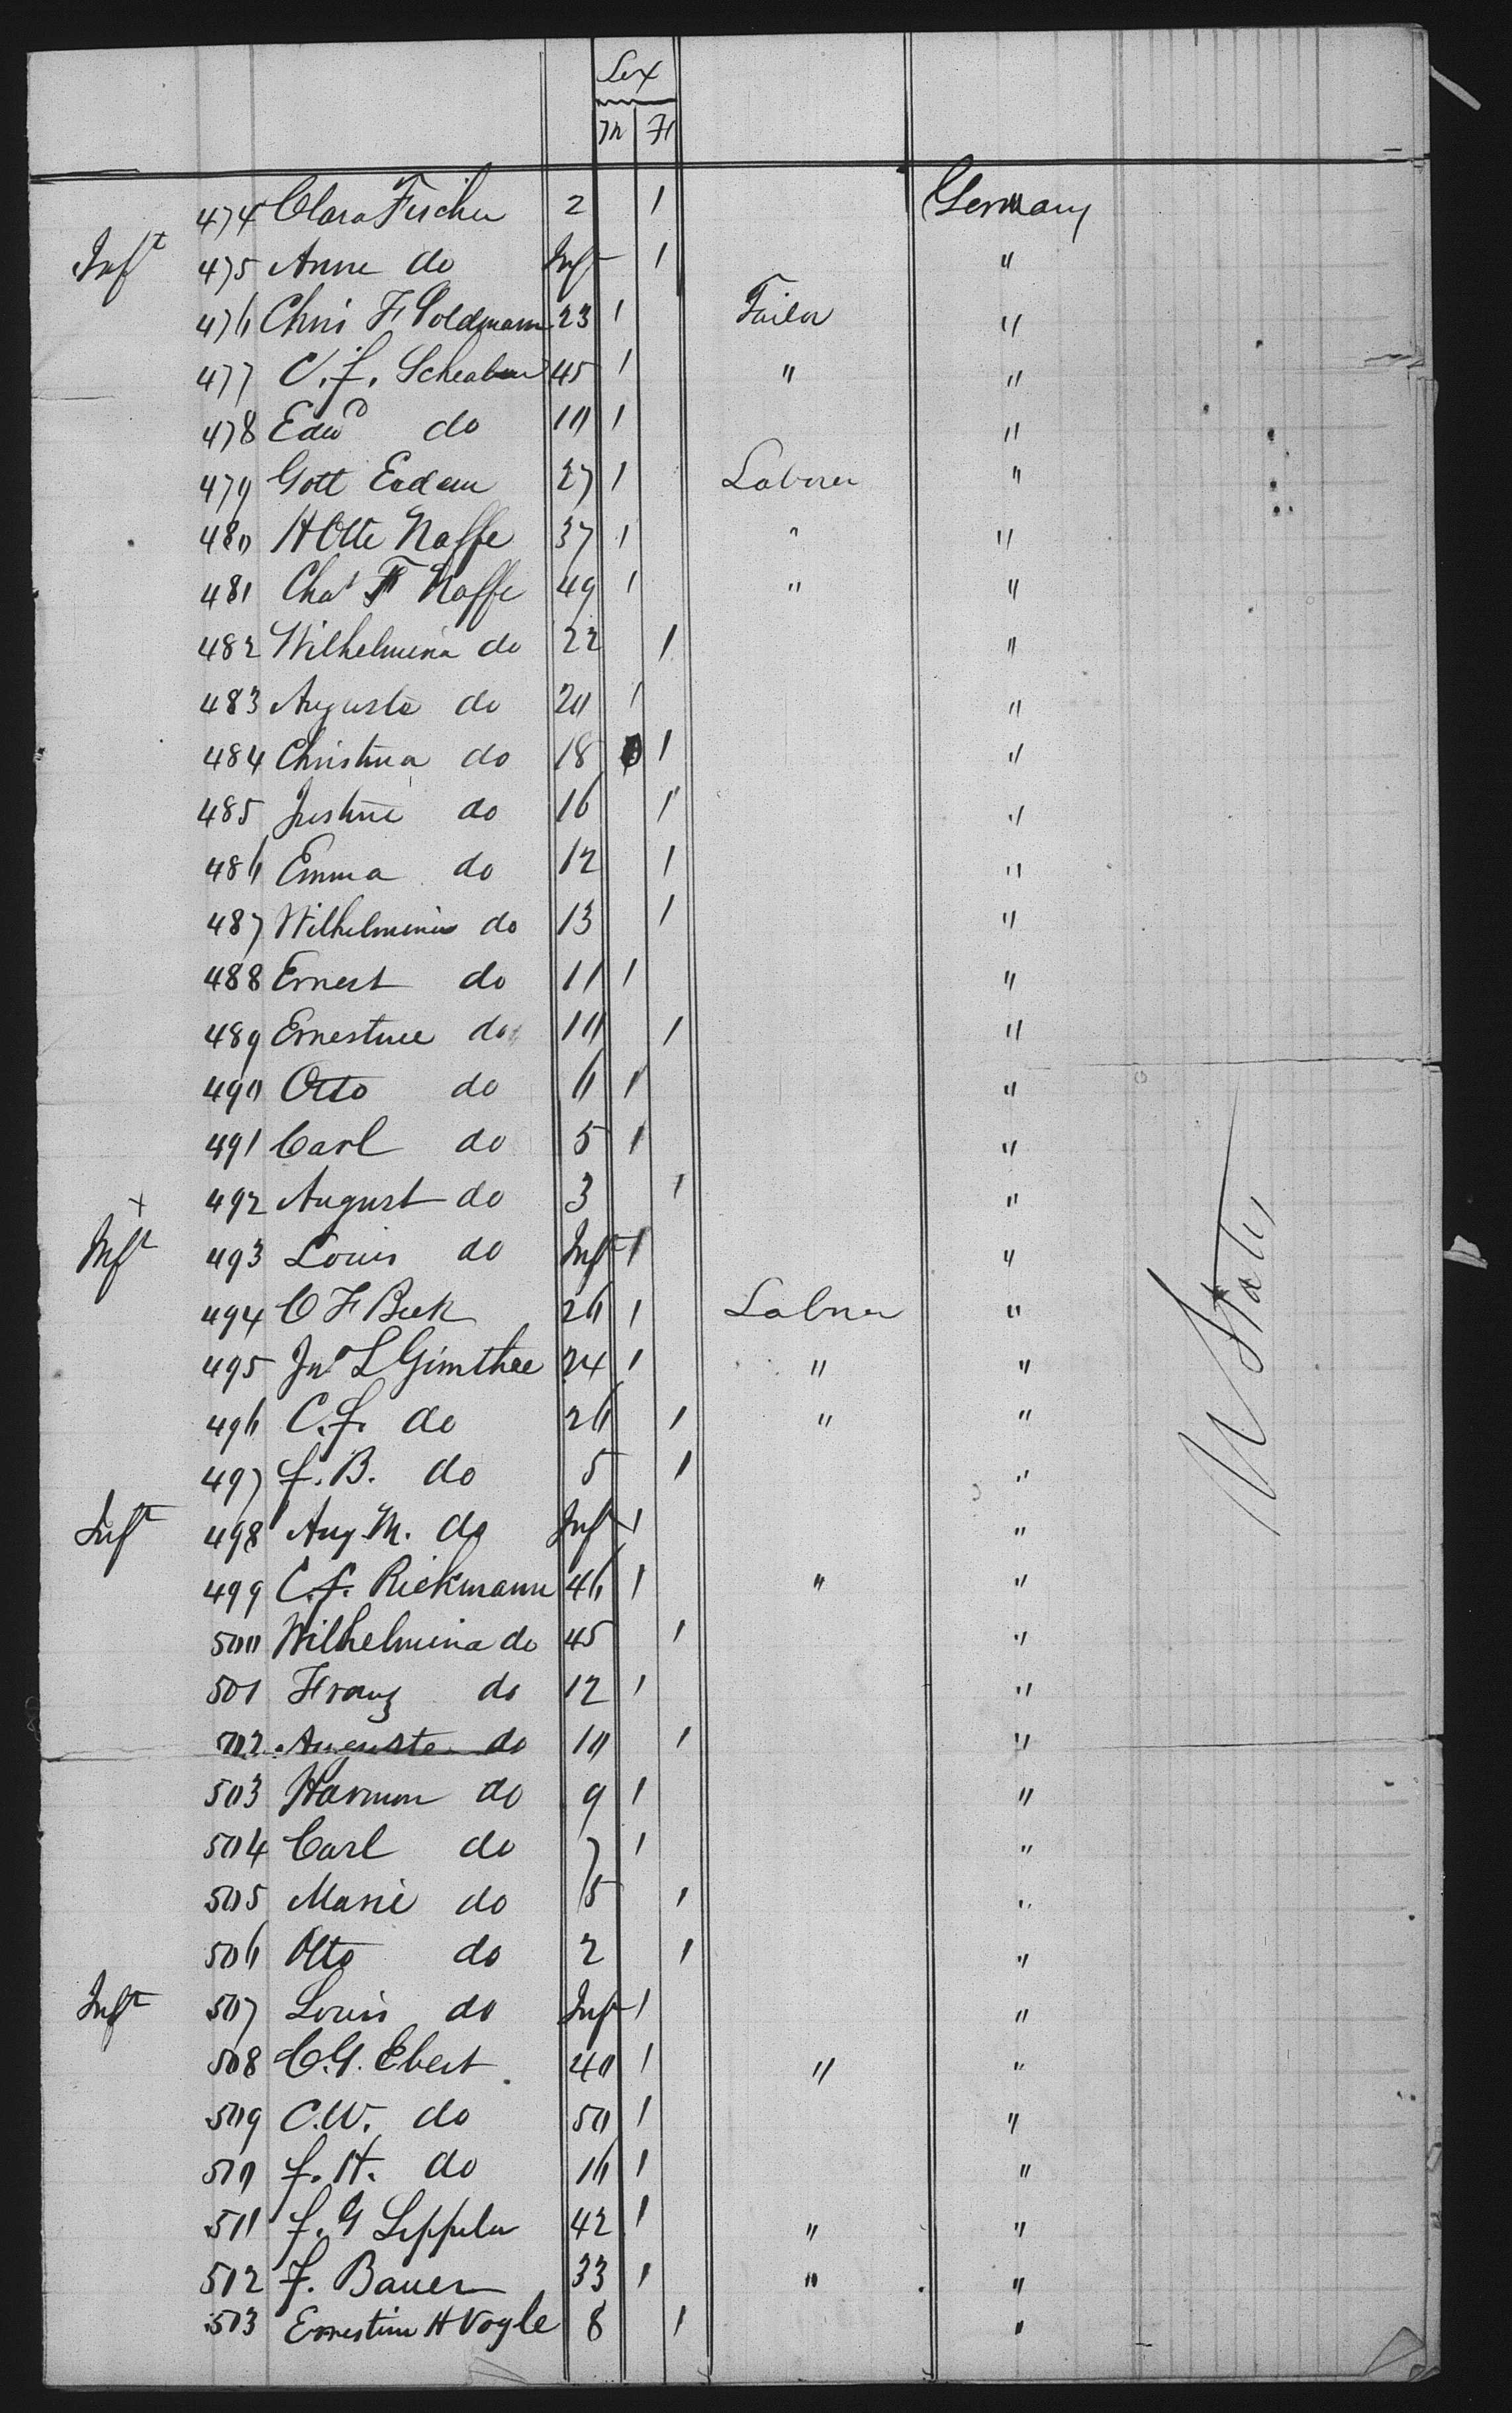 Sex
M F
474 Clara Fischer 2 1 Germany
Inft 475 Anne do Inft 1 "
476 Chris F Poldmann 23 1 Tailor "
477 C. f. 45 1 " "
478 Edwd do 10 1 "
479 Gott 27 1 Laborer "
480 H Otte Naffe 37 1 " "
481 Chas F Naffe 49 1 " "
482 Wilhelmina do 22 1 "
483 Augusta do 20 1 "
484 Christina do 18 1 "
485 Justine do 16 1 "
486 Emma do 12 1 "
487 Wilhelmina do 13 1 "
488 Ernest do 11 1 "
489 Ernestine do 10 1 "
490 Otto do 6 1 "
491 Carl do 5 1 "
x 492 August do 3 1 "
Inft 493 Louis do Inft 1 "
494 C F Beck 26 1 Labrer "
495 Jno L Gimthee 24 1 " "
496 C. f. do 26 1 " "
497 f. B. do 5 1 "
Inft 498 Aug M. do Inft 1 "
499 C. f. Riekmann 46 1 " "
500 Wilhelmina do 45 1 "
501 Franz do 12 1 "
502 Auguste do 10 1 "
503 Harmon do 9 1 "
504 Carl do 7 1 "
505 Marie do 5 1 "
506 Otto do 2 1 "
Inft 507 Louis do Inft 1 "
508 C. G. Ebert 40 1 " "
509 C. W. do 50 1 "
510 f. H. do 16 1 "
511 f. G 42 1 " "
512 F. Bauer 33 1 " "
513 Ernestine H Vogle 8 1 "
U States